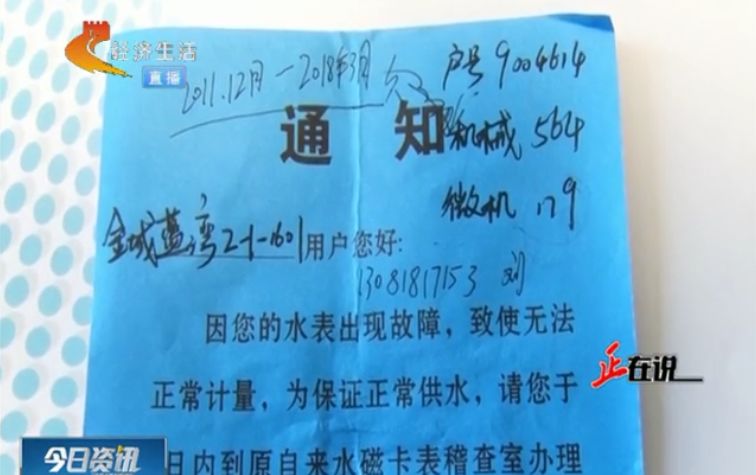 经济生活
直播
2011.12月-2018年3月 欠
户号9004614
通知
机械 564
微机 179
金域蓝湾2-1-1601用户您好:
13081817153 刘
因您的水表出现故障,致使无法
正常计量,为保证正常供水,请您于
日内到原自来水磁卡表稽查室办理
正在说
今日资讯